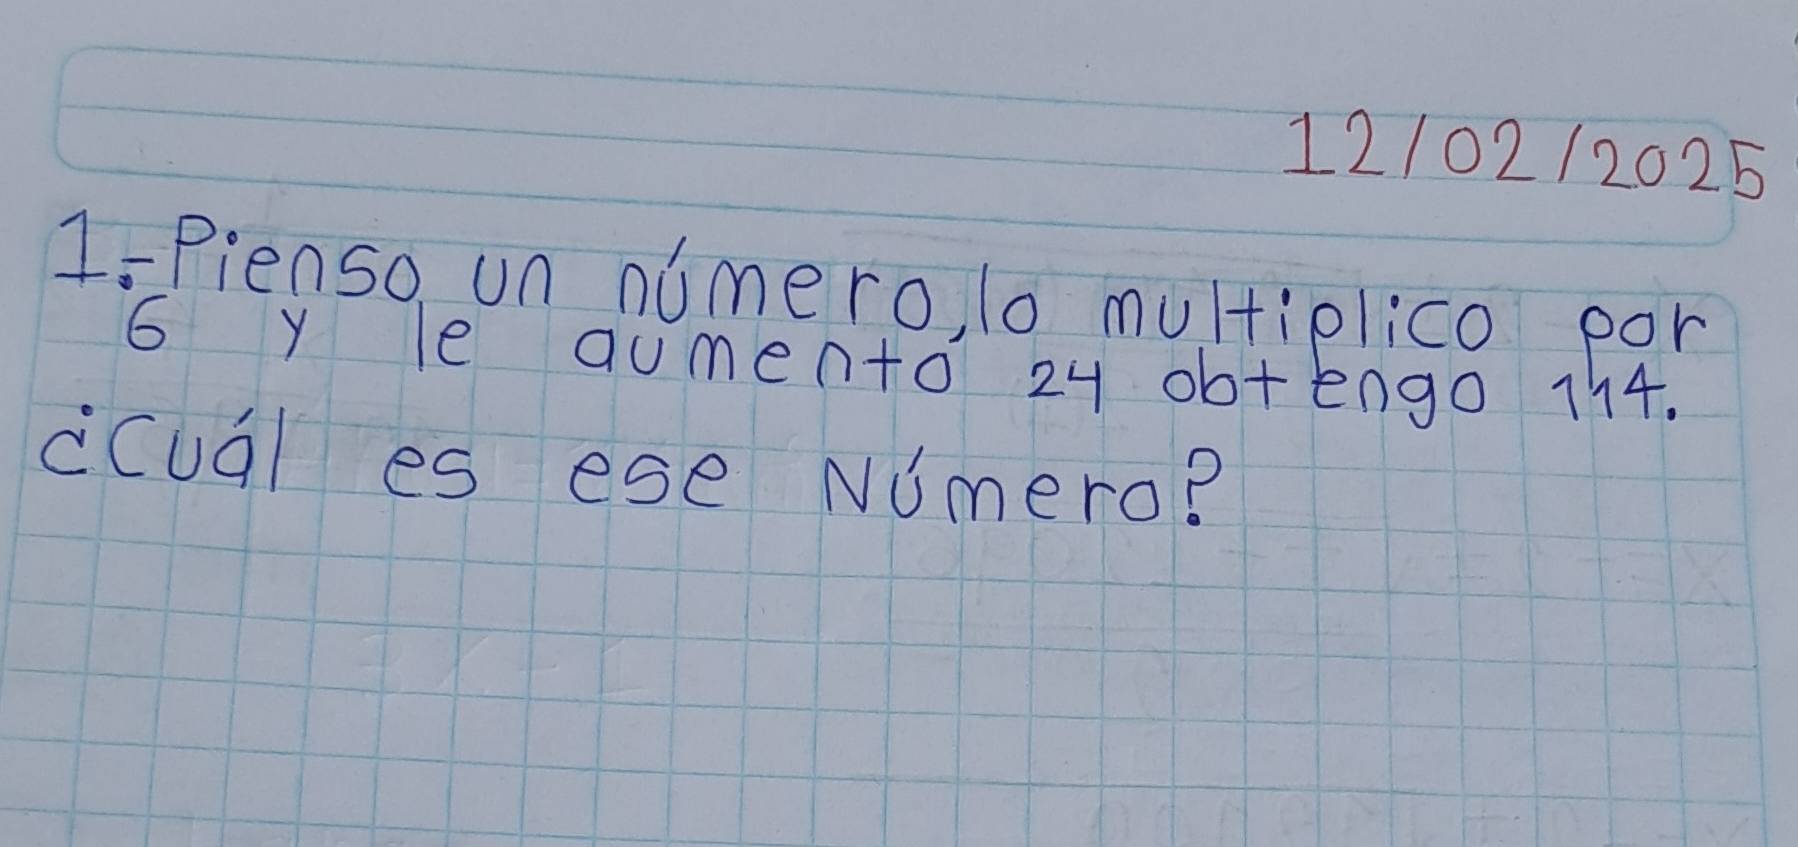 12/02/2025
1.-Pienso un número, lo multiplico por
6 y le aumentó 24 obtengo 114.
¿Cuál es ese Número?